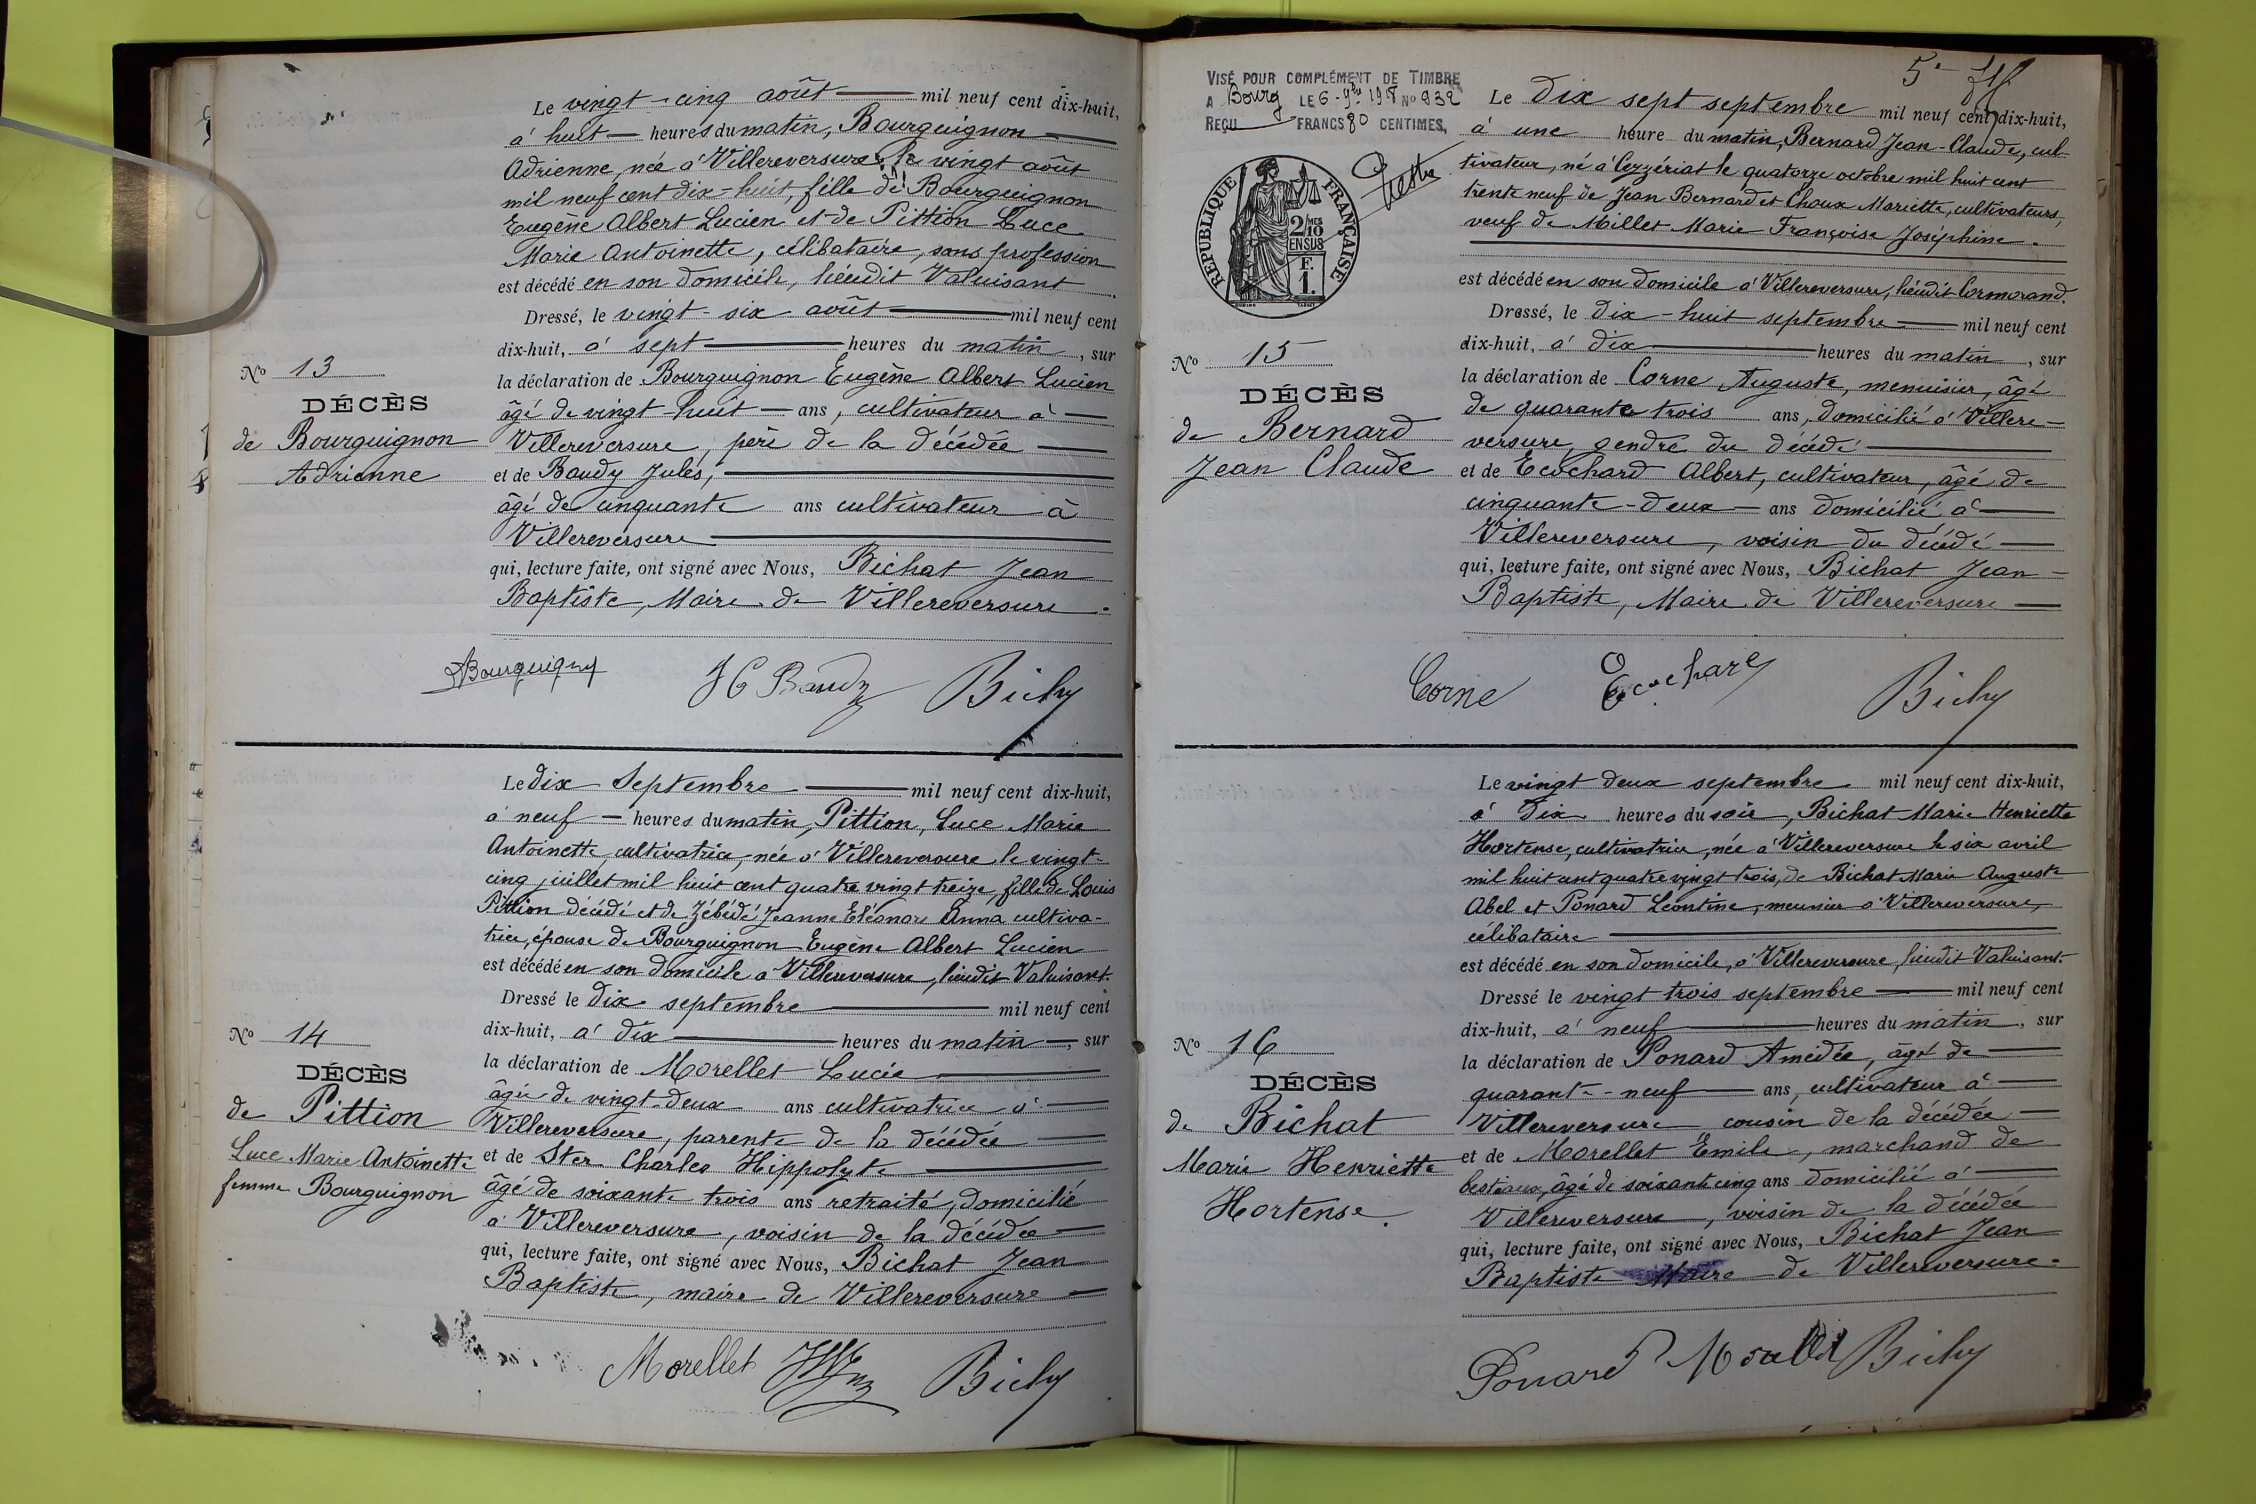 Le vingt-cinq août mil neuf cent dix-huit,
à huit heures du matin, Bourguignon
Adrienne, née à Villereversure, le vingt août
mil neuf cent dix-huit, fille de Bourguignon
Eugène Albert Lucien et de Pittion Luce
Marie Antoinette, célibataire, sans profession
est décédé en son domicile, lieudit Valuisant.
Dressé, le vingt-six août mil neuf cent
dix-huit, à sept heures du matin, sur
la déclaration de Bourguignon Eugène Albert Lucien
âgé de vingt-huit ans, cultivateur à
Villereversure, père de la décédée
et de Baudy Jules,
âgé de cinquante ans cultivateur à
Villereversure
qui, lecture faite, ont signé avec Nous, Bichat Jean
Baptiste, Maire de Villereversure.
No 13
DÉCÈS
de Bourguignon
Adrienne
Bourguignon
Baudy
Le dix Septembre mil neuf cent dix-huit,
à neuf heures du matin, Pittion, Luce Marie
Antoinette, cultivatrice, née à Villereversure le vingt-
cinq juillet mil huit cent quatre vingt treize, fille de Louis
Pittion décédé et de Zébédé Jeanne Eléanore Anna cultiva-
trice, épouse de Bourguignon Eugène Albert Lucien
est décédé en son domicile à Villereversure, lieudit Valuisant.
Dressé le dix septembre mil neuf cent
dix-huit, à dix heures du matin, sur
la déclaration de Morellet Lucie
âgée de vingt-deux ans cultivatrice à
Villereversure, parente de la décédée
et de Ster Charles Hippolyte
âgé de soixante trois ans retraité, domicilié
à Villereversure, voisin de la décédée
qui, lecture faite, ont signé avec Nous, Bichat Jean
Baptiste, maire de Villereversure
No 14
DÉCÈS
de Pittion
Luce Marie Antoinette
femme Bourguignon
Morellet
VISÉ POUR COMPLÉMENT DE TIMBRE
A Bourg LE 6-9bre 1918 No 932
REÇU FRANCS 80 CENTIMES,
RÉPUBLIQUE FRANÇAISE
2/10 MES
EN SUS
F.
1.
5e
Le Dix sept septembre mil neuf cent dix-huit,
à une heure du matin, Bernard Jean-Claude, cul-
tivateur, né à Cezzériat le quatorze octobre mil huit cent
trente neuf de Jean Bernard et Choux Mariette, cultivateurs,
veuf de Millet Marie Françoise Joséphine.
est décédé en son domicile à Villereversure, lieudit Cormorand.
Dressé, le dix-huit septembre mil neuf cent
dix-huit, à dix heures du matin, sur
la déclaration de Corne Auguste, menuisier, âgé
de quarante trois ans, domicilié à Villere-
versure, gendre du décédé
et de Ecochard Albert, cultivateur, âgé de
cinquante-deux ans domicilié à
Villereversure, voisin du décédé
qui, lecture faite, ont signé avec Nous, Bichat Jean
Baptiste, Maire de Villereversure
No 15
DÉCÈS
de Bernard
Jean Claude
Corne Ecochard
Le vingt deux septembre mil neuf cent dix-huit,
à Dix heures du soir, Bichat Marie Henriette
Hortense, cultivatrice, née à Villereversure le six avril
mil huit cent quatre vingt trois, de Bichat Marie Auguste
Abel et Ponard Léontine, meunier à Villereversure,
célibataire
est décédé en son domicile, à Villereversure, lieudit Valuisant.
Dressé le vingt trois septembre mil neuf cent
dix-huit, à neuf heures du matin, sur
la déclaration de Ponard Amédée, âgé de
quarante-neuf ans, cultivateur à
Villereversure cousin de la décédée
et de Morellet Emile, marchand de
bestiaux, âgé de soixante cinq ans domicilié à
Villereversure, voisin de la décédée
qui, lecture faite, ont signé avec Nous, Bichat Jean
Baptiste Maire de Villereversure.
No 16
DÉCÈS
de Bichat
Marie Henriette
Hortense.
Ponard